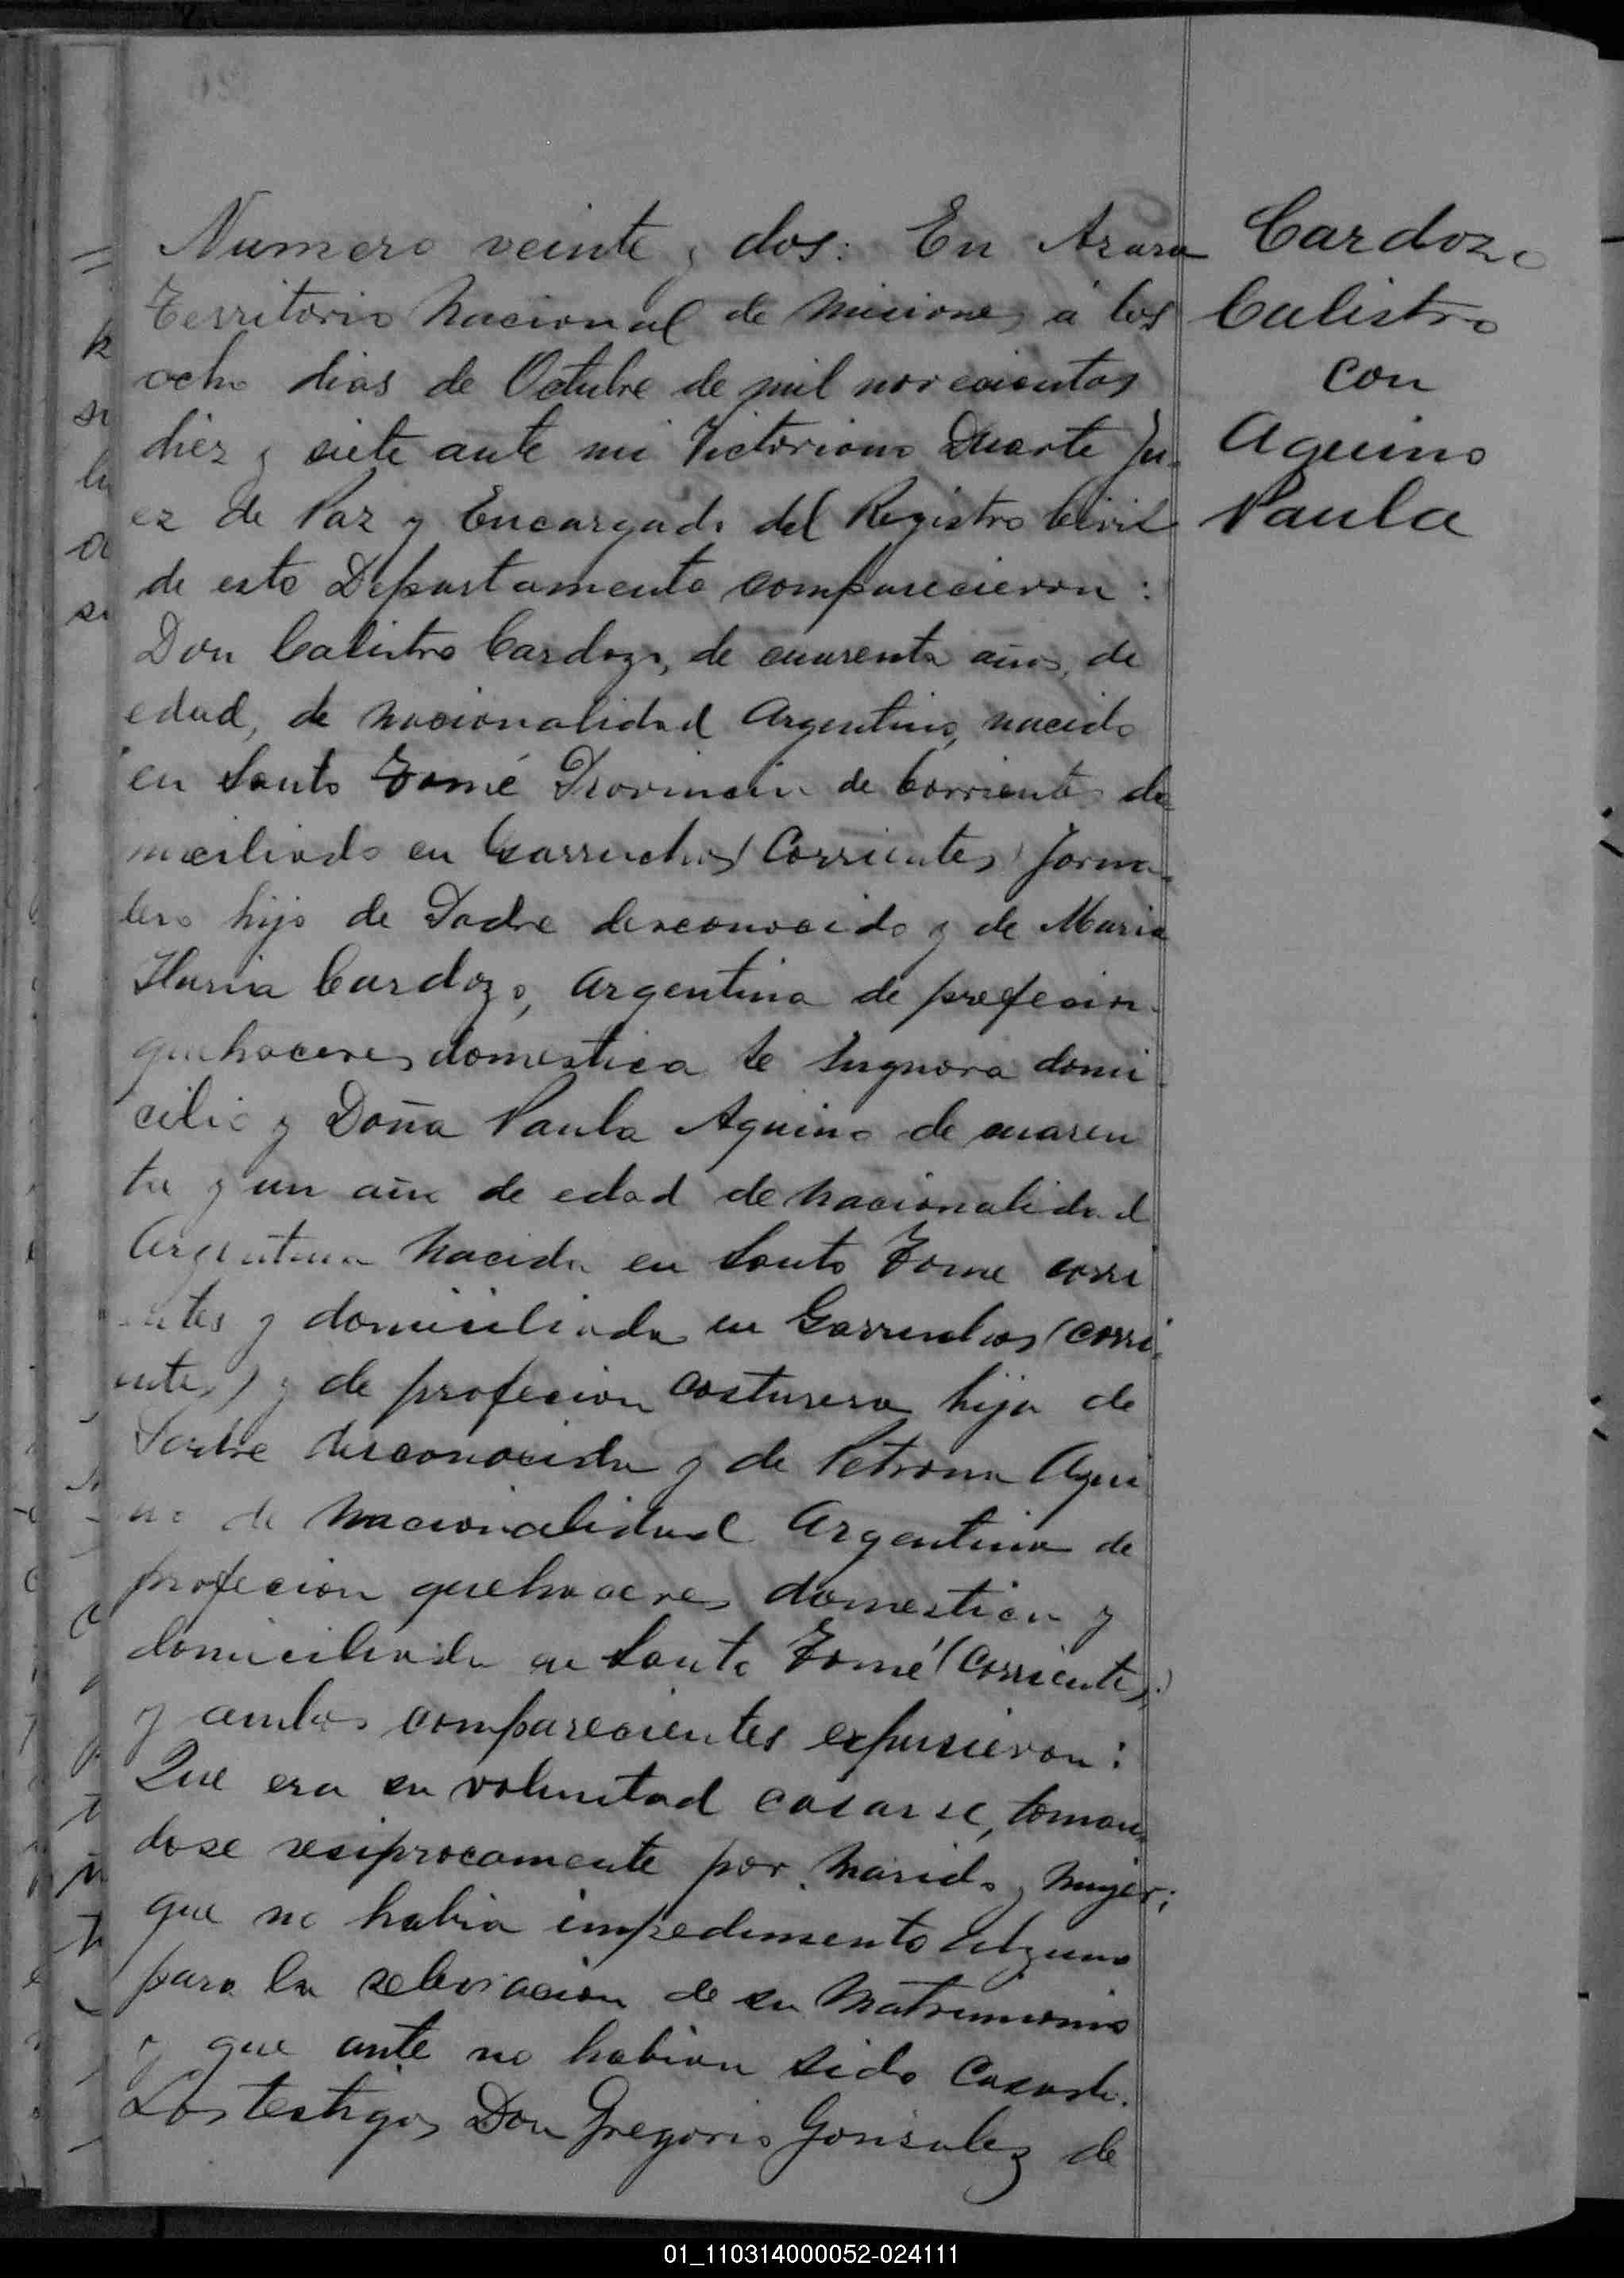 Numero veinte y dos: En Azara
Territorio Nacional de Misiones á los
ocho dias de Octubre de mil novecientos
diez y siete ante mi Victoriano Duarte Ju-
ez de Paz y Encargado del Registro Civil
de este Departamento comparecieron:
Don Calistro Cardozo, de cuarenta años, de
edad, de nacionalidad Argentino, nacido
en Santo Tomé Provincia de Corrientes do
miciliado en Garruchos (Corrientes) Jorna-
lero hijo de Padre desconocido y de Maria
Ilaria Cardozo, Argentina de profecion
quehaceres domestica se Ingnora domi-
cilio y Doña Paula Aquino de cuaren
ta y un año de edad de nacionalidad
Argentina Nacida en Santo Tome corri
entes y domiciliada en Garruchos (Corri-
entes) y de profecion costurera hija de
Padre desconocido y de Petrona Aqui
no de Nacionalidad Argentina de
profecion quehaceres domestica y
domiciliada en Santo Tomé (Corrientes)
y ambos comparecientes expusieron:
Que era su voluntad casarse, toman-
dose resiprocamente por Marido y Mujer;
que no habia impedimento alguno
para la selebracion de su Matrimonio
y que ante no habian sido Casado.
Los testigos Don Gregorio Gonsalez de
Cardozo
Calistro
con
Aquino
Paula
01_110314000052-024111